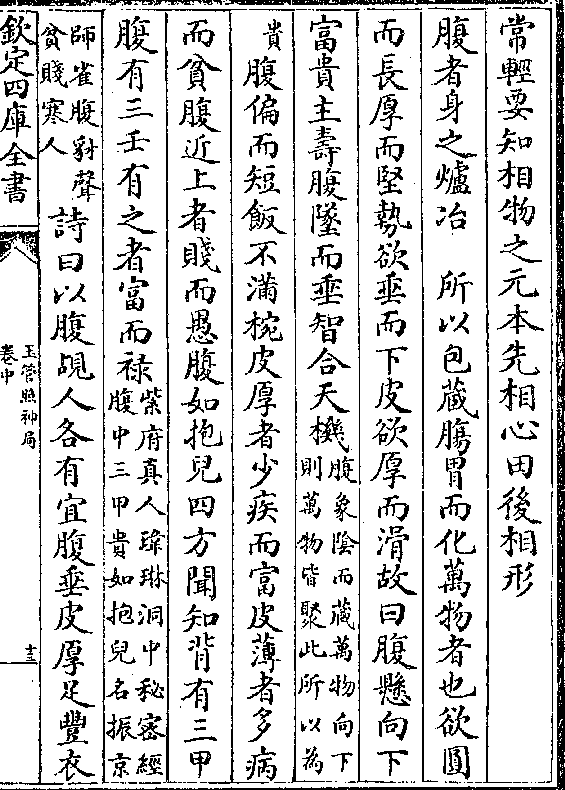 常輕要知相物之元本先相心田後相形
腹者身之爐冶　所以包藏腸胃而化萬物者也欲圓
而長厚而堅勢欲垂而下皮欲厚而滑故曰腹懸向下
富貴主壽腹墜而垂智合天機腹象陰而藏萬物向下則萬物皆聚此所以為
貴腹偏而短飯不滿椀皮厚者少疾而富皮薄者多病
而貧腹近上者賤而愚腹如抱兒四方聞知背有三甲
腹有三壬有之者富而祿紫府真人瑋琳洞中秘密經腹中三甲貴如抱兒名振京
師雀腹豺聲貧賤寒人詩曰以腹覘人各有宜腹垂皮厚足豐衣
欽定四庫全書
玉管照神局
卷中
十三